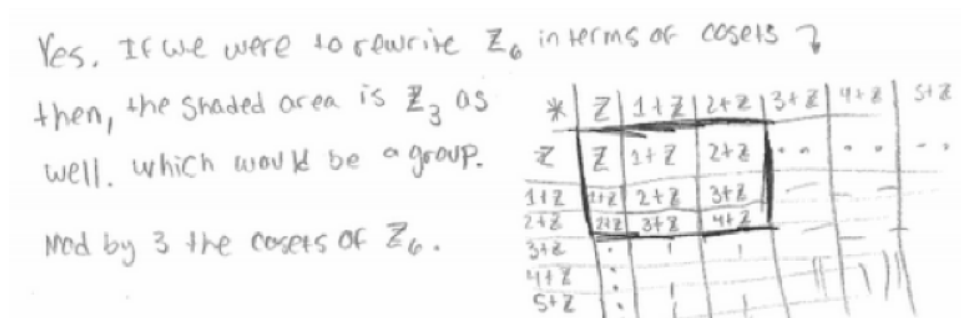 Yes. If we were to rewrite ℤ₆ in terms of cosets ↴
then, the shaded area is ℤ₃ as
well. which would be a group.
Mod by 3 the cosets of ℤ₆.
* | ℤ | 1+ℤ | 2+ℤ | 3+ℤ | 4+ℤ | 5+ℤ
ℤ | ℤ | 1+ℤ | 2+ℤ
1+ℤ | 1+ℤ | 2+ℤ | 3+ℤ
2+ℤ | 2+ℤ | 3+ℤ | 4+ℤ
3+ℤ
4+ℤ
5+ℤ